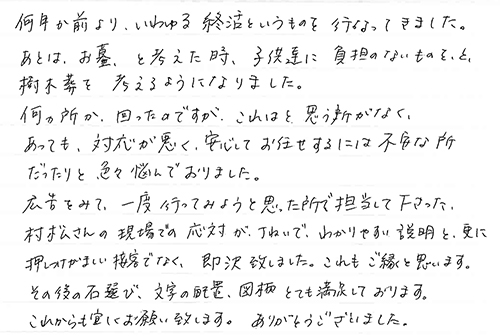 何年か前より、いわゆる終活というものを行なってきました。
あとは、お墓、と考えた時、子供達に負担のないものを、と、
樹木葬を考えるようになりました。
何カ所か、回ったのですが、これはと思う所がなく、
あっても、対応が悪く、安心してお任せするには不安な所
だったりと色々悩んでおりました。
広告をみて、一度行ってみようと思った所で担当して下さった、
村松さんの現場での応対が、ていねいで、わかりやすい説明と、更に
押しつけがましい接客でなく、即決致しました。これもご縁と思います。
その後の石選び、文字の配置、図柄とても満足しております。
これからも宜しくお願い致します。ありがとうございました。